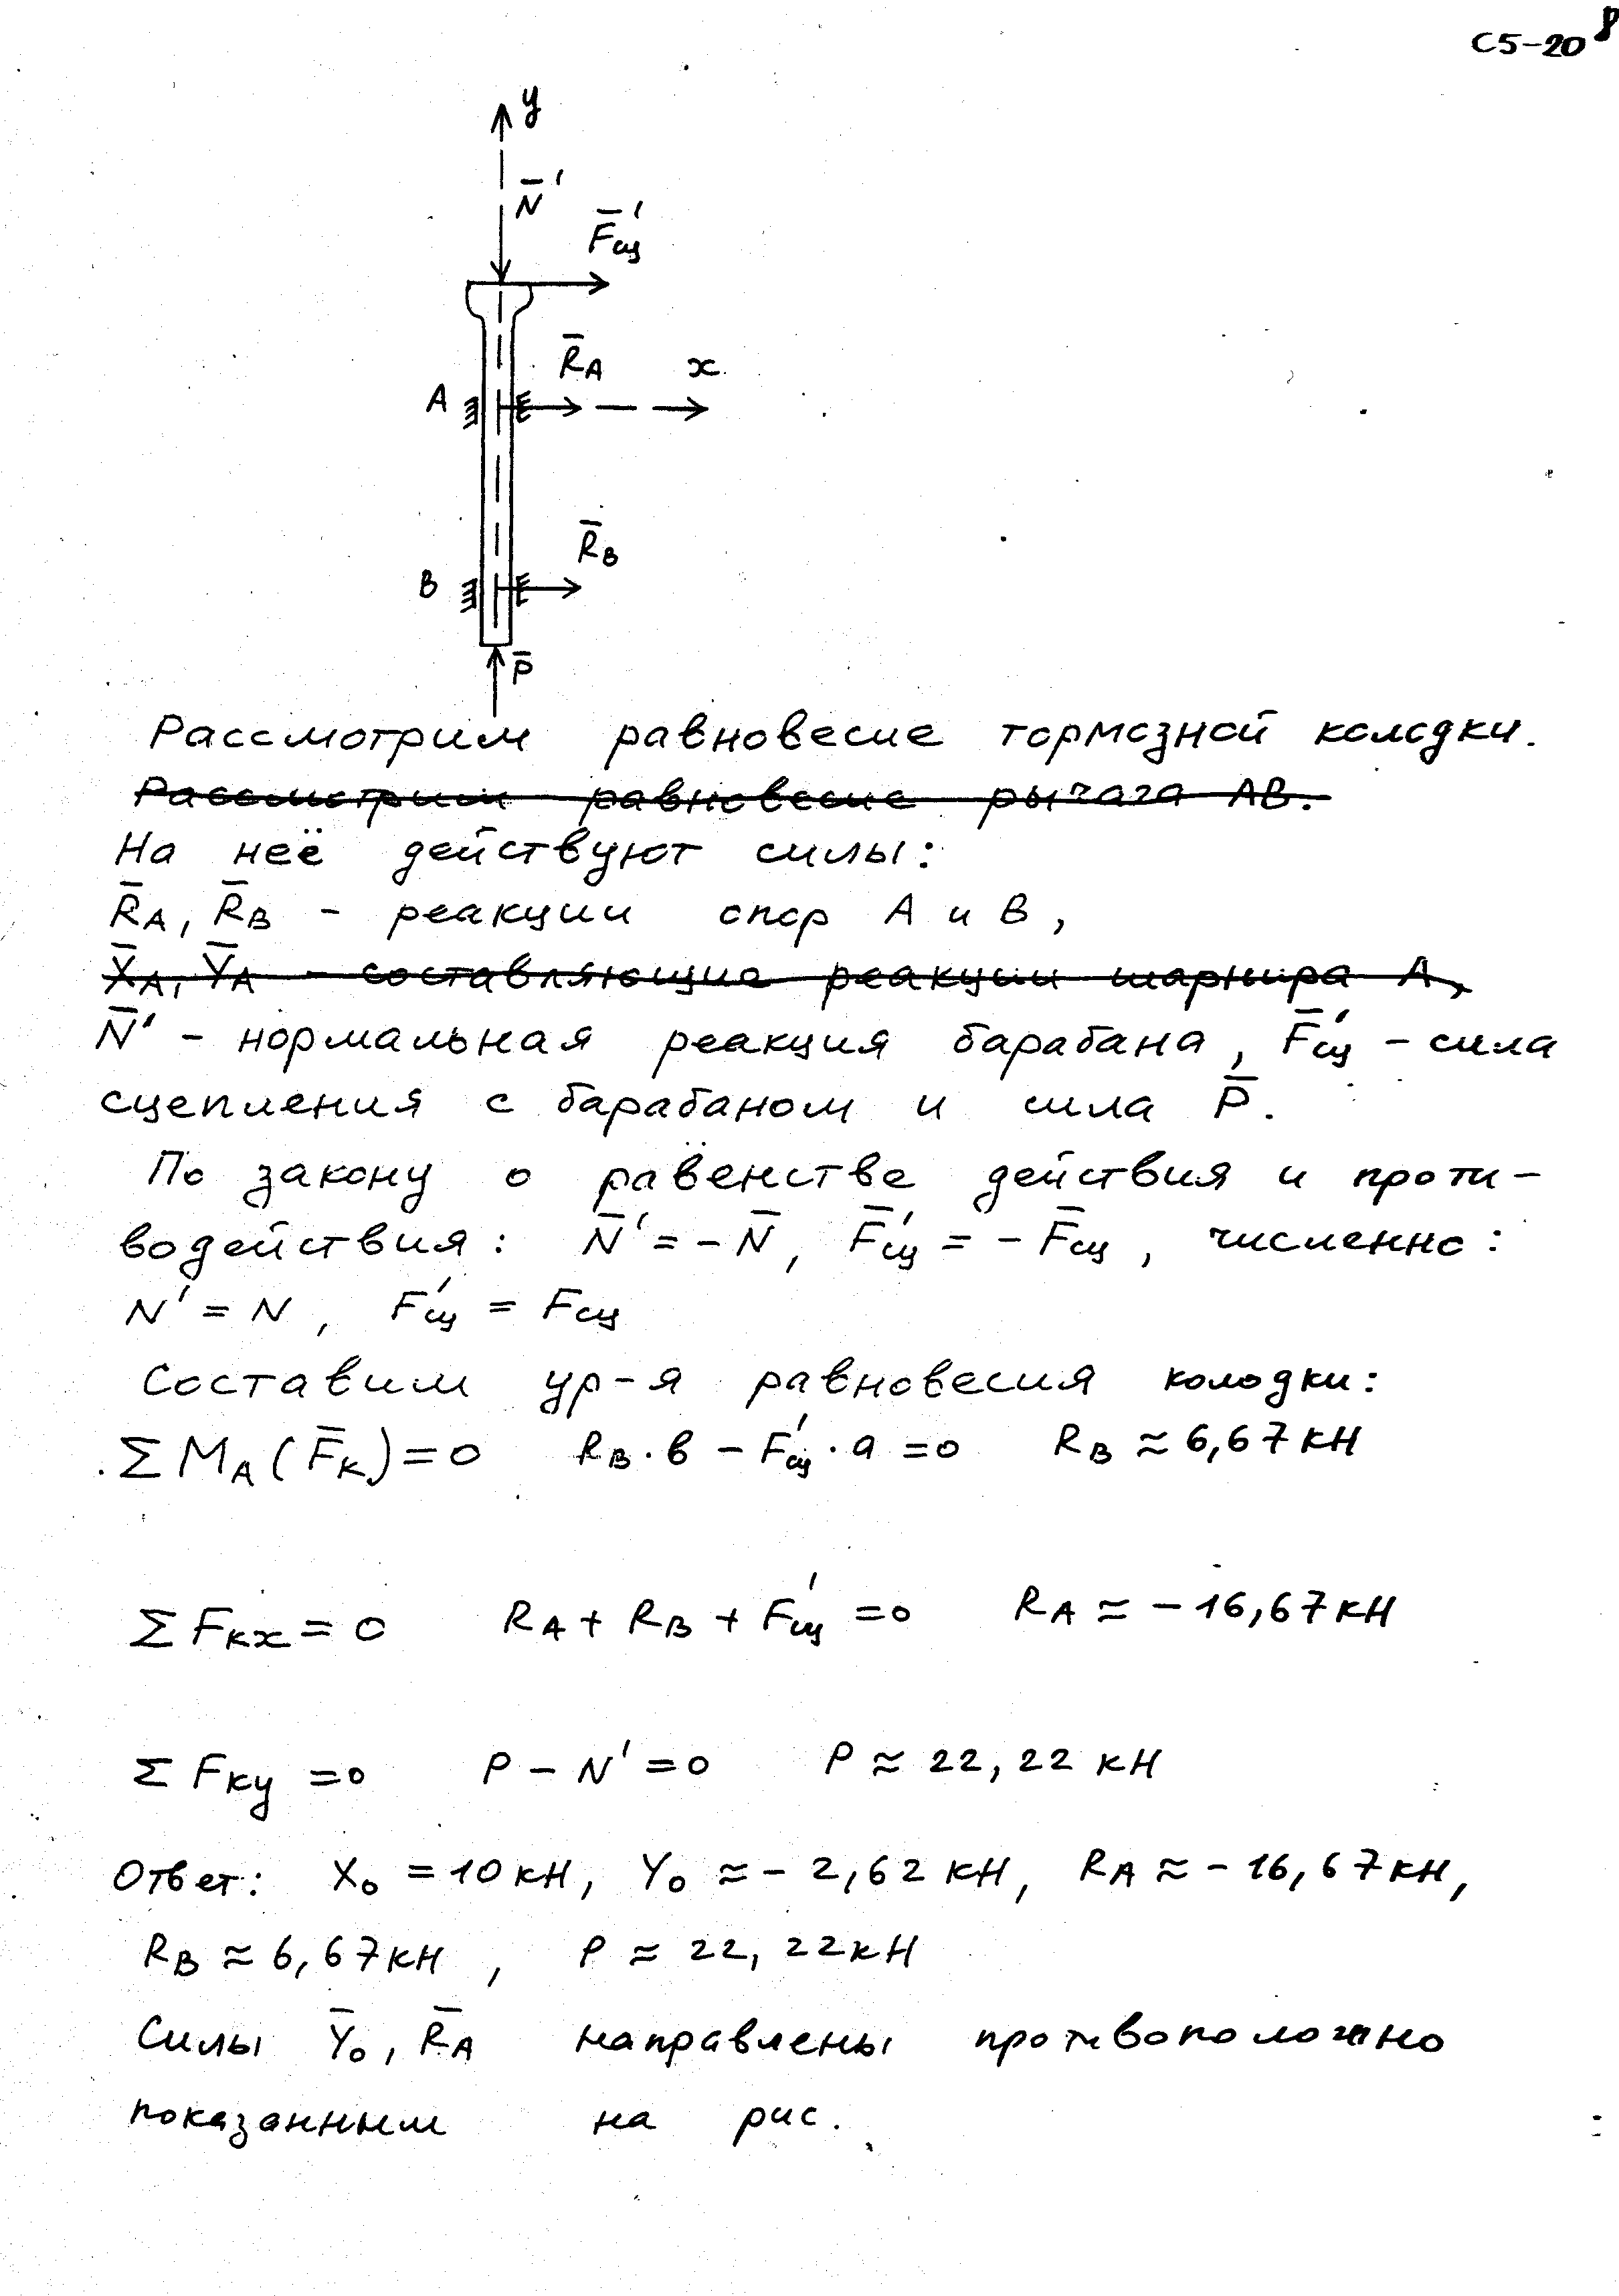 С5-20 8
y
N̄'
F̄'сц
R̄A x
A
R̄B
B
P̄
Рассмотрим равновесие тормозной колодки.
Рассмотрим равновесие рычага AB.
На неё действуют силы:
R̄A, R̄B - реакции опор A и B,
X̄A, ȲA - составляющие реакции шарнира A,
N̄' - нормальная реакция барабана, F̄'сц - сила
сцепления с барабаном и сила P̄.
По закону о равенстве действия и проти-
водействия: N̄' = - N̄, F̄'сц = - F̄сц, численно:
N' = N, F'сц = Fсц
Составим ур-я равновесия колодки:
ΣMA(F̄к)=0 RB·b - F'сц·a =0 RB ≈ 6,67 кН
ΣFкx = 0 RA + RB + F'сц =0 RA ≈ -16,67 кН
ΣFкy =0 P - N' =0 P ≈ 22,22 кН
Ответ: X₀ =10 кН, Y₀ ≈ - 2,62 кН, RA ≈ - 16,67 кН,
RB ≈ 6,67 кН, P ≈ 22,22 кН
Силы Ȳ₀, R̄A направлены противоположно
показанным на рис.